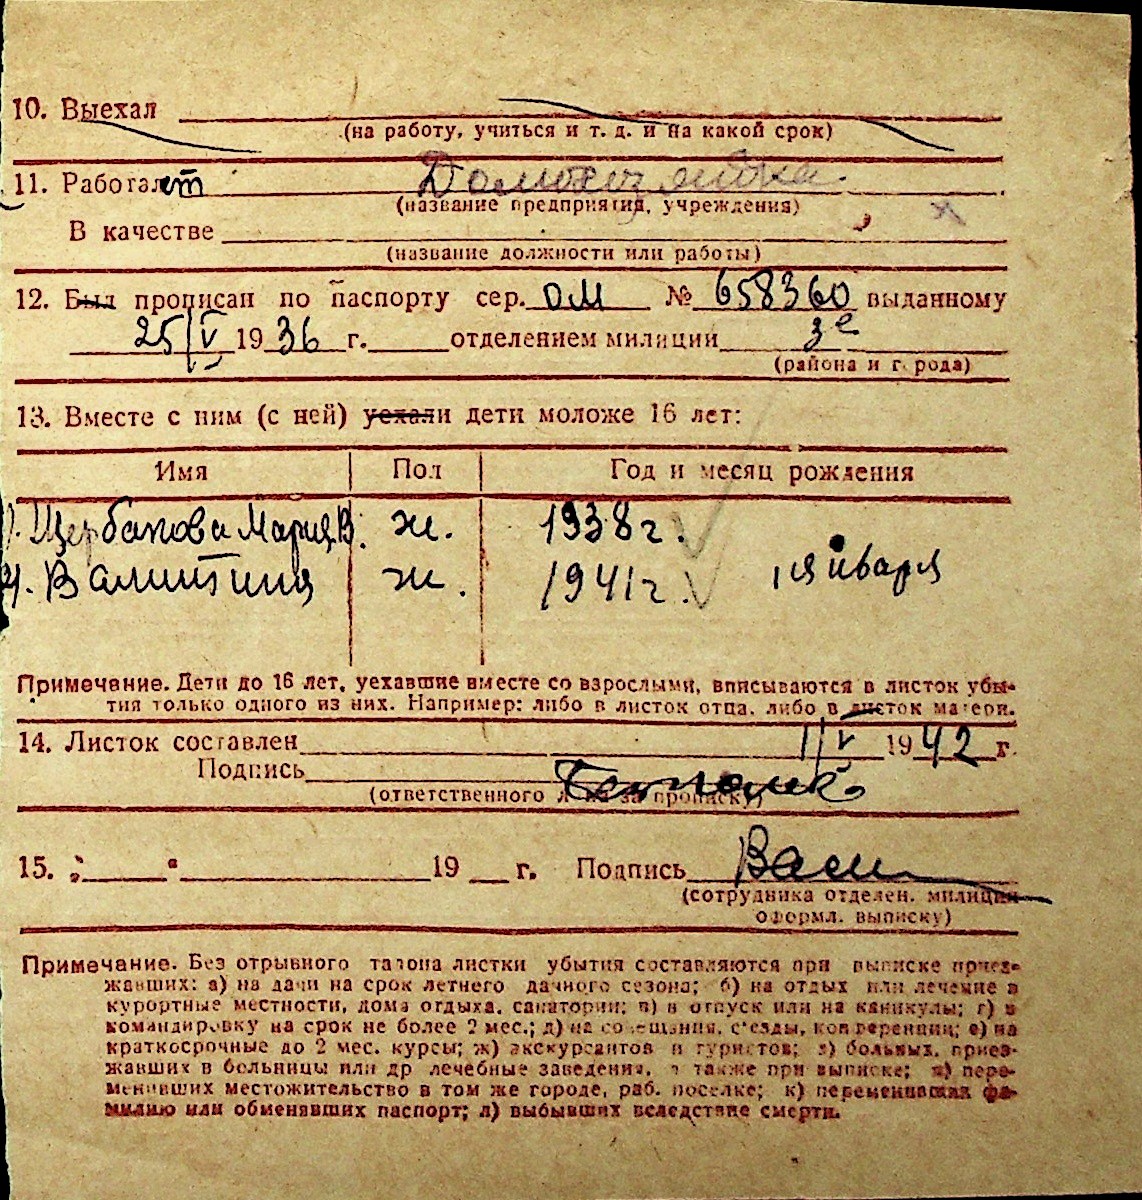 10. Выехал
(на работу, учиться и т. д. и на какой срок)
11. Работает Домохозяйка.
(название предприятия, учреждения)
В качестве
(название должности или работы)
12. Был прописан по паспорту сер. ОМ № 658360 выданному
25/V 1936 г. отделением милиции 3е
(района и города)
13. Вместе с ним (с ней) уехали дети моложе 16 лет:
Имя Пол Год и месяц рождения
1. Щербакова Мария В. ж. 1938 г.
2. Валентина ж. 1941 г. 1 января
Примечание. Дети до 16 лет, уехавшие вместе со взрослыми, вписываются в листок убы-
тия только одного из них. Например: либо в листок отца, либо в листок матери.
14. Листок составлен 1/V 1942 г.
Подпись
(ответственного лица за прописку)
15. „ “ 19 г. Подпись
(сотрудника отделен. милиции
оформл. выписку)
Примечание. Без отрывного талона листки убытия составляются при выписке приез-
жавших: а) на дачи на срок летнего дачного сезона; б) на отдых или лечение в
курортные местности, дома отдыха, санатории; в) в отпуск или на каникулы; г) в
командировку на срок не более 2 мес.; д) на совещания, съезды, конференции; е) на
краткосрочные до 2 мес. курсы; ж) экскурсантов и туристов; з) больных, приез-
жавших в больницы или др лечебные заведения, а также при выписке; и) пере-
менивших местожительство в том же городе, раб. поселке; к) переменивших фа-
милию или обменявших паспорт; л) выбывших вследствие смерти.